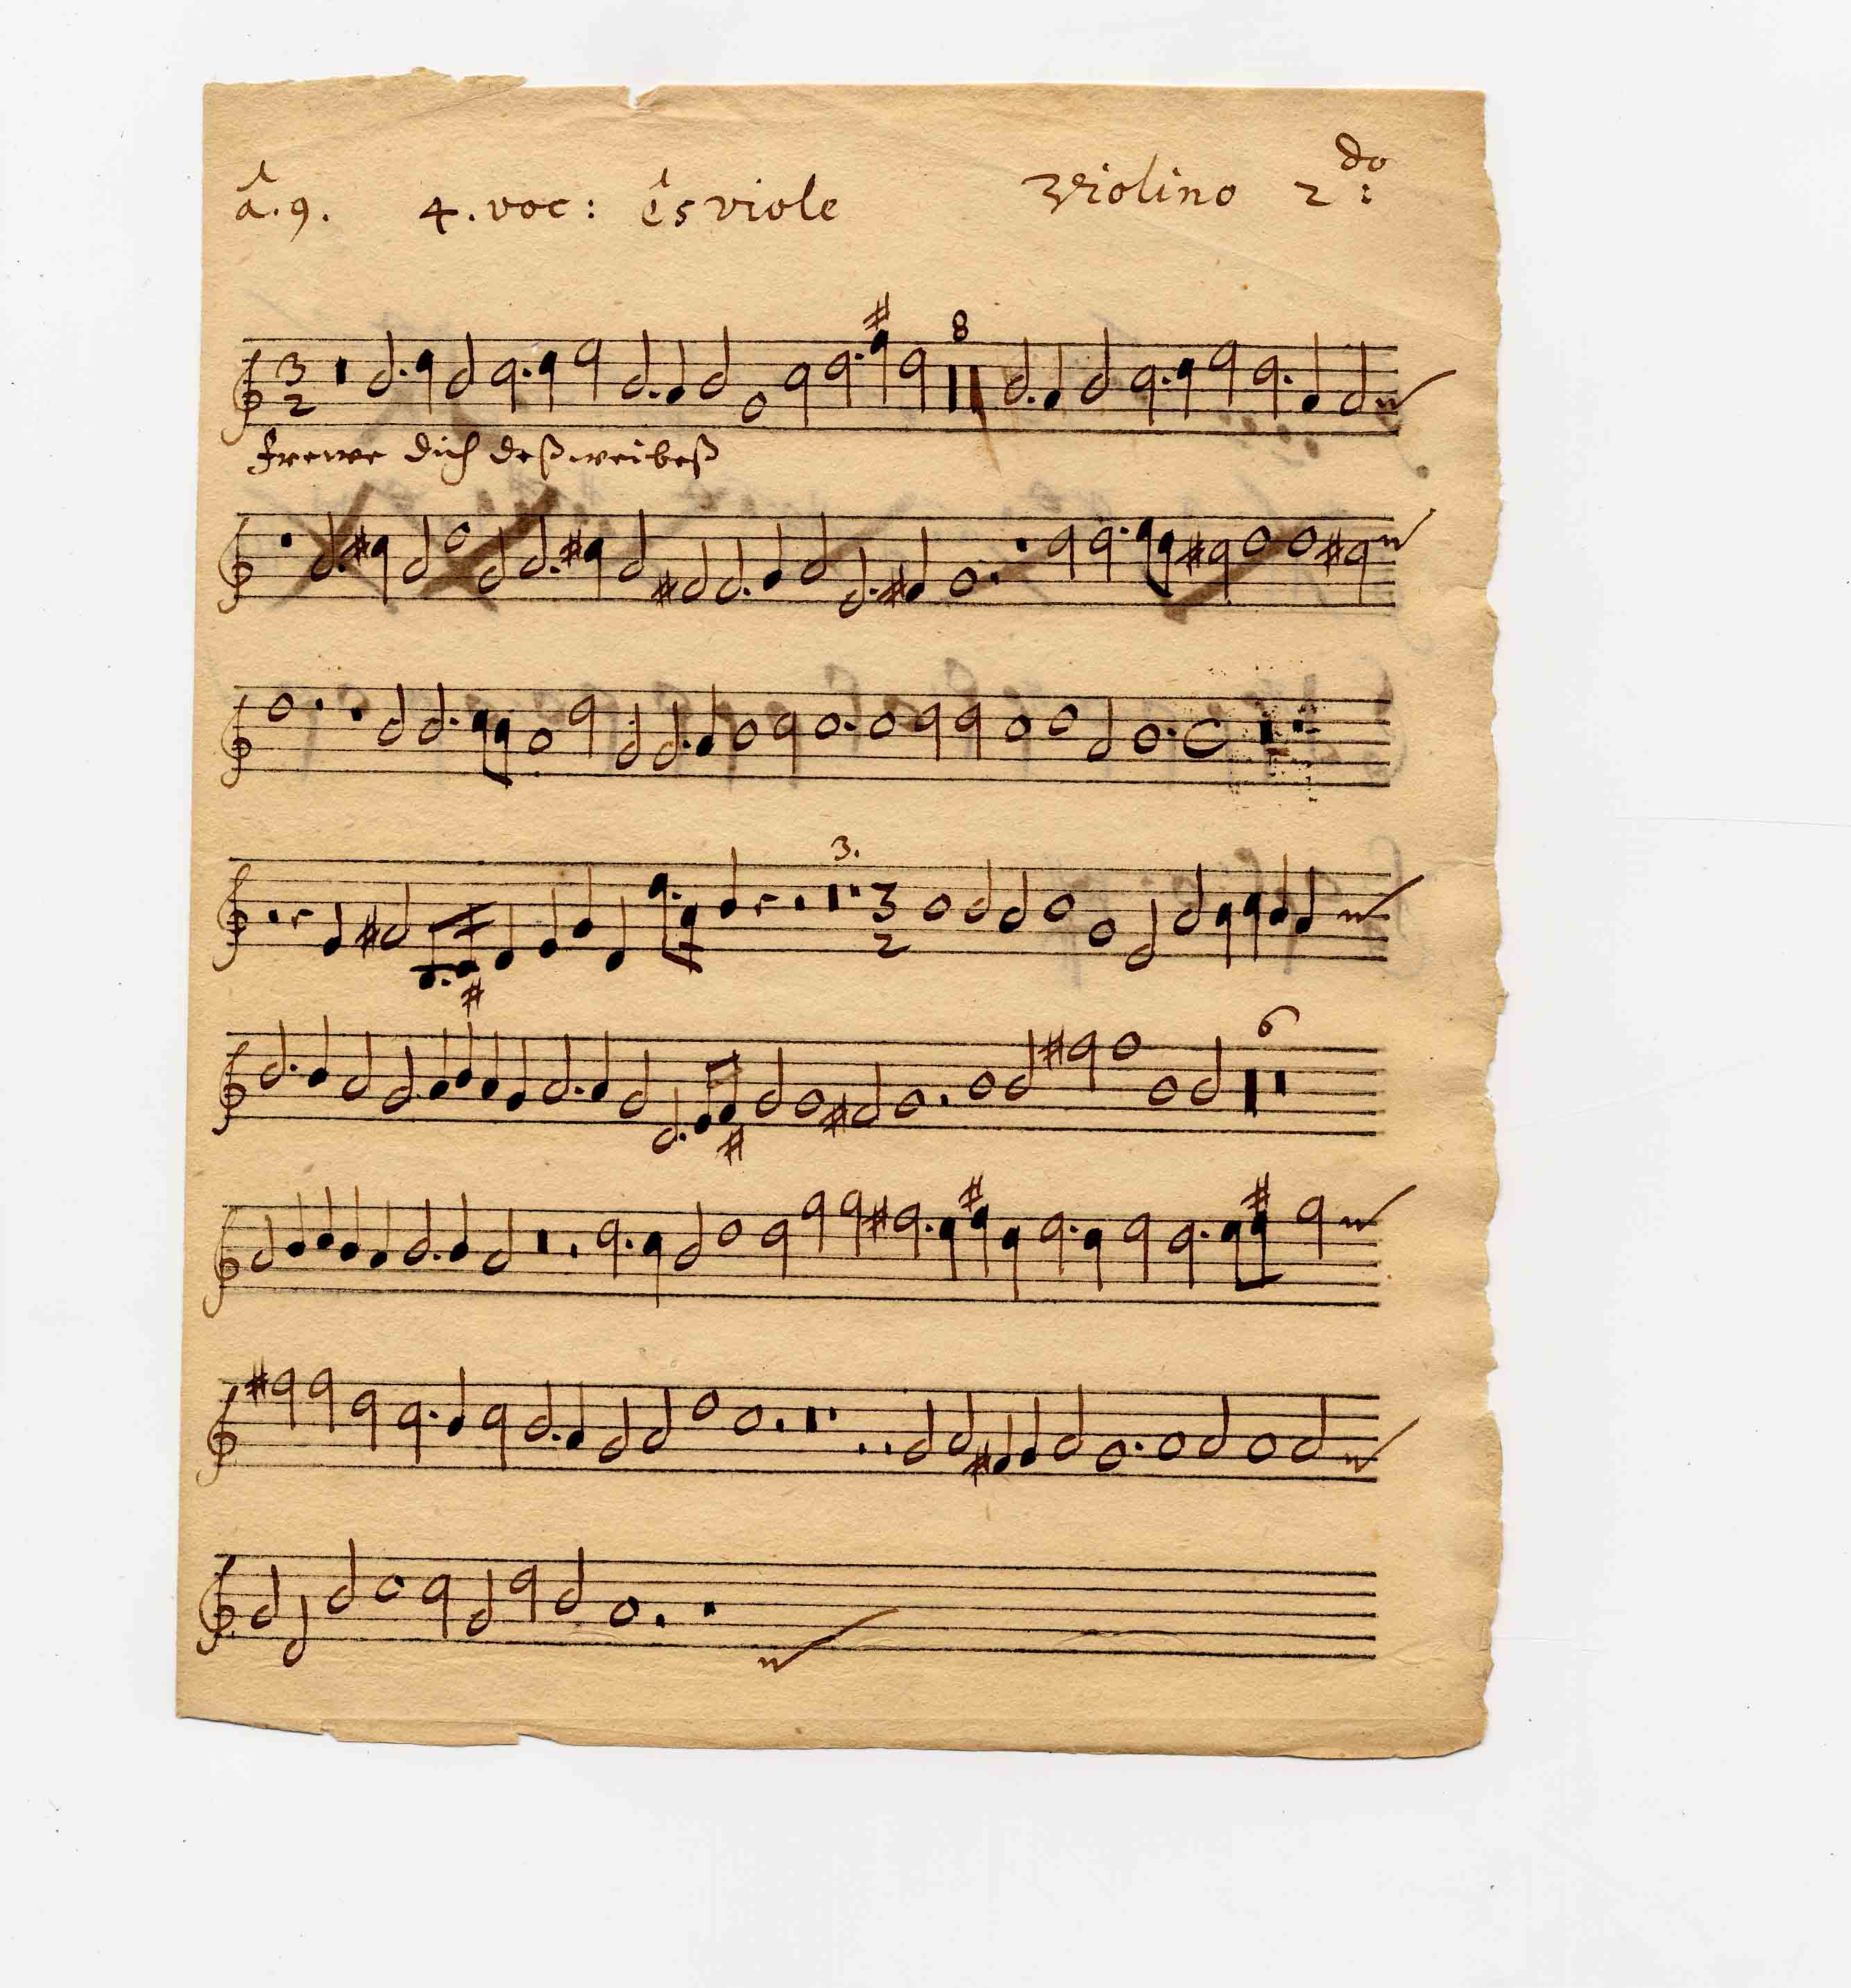 â. 9. 4. voc: ê 5 viole Violino 2do:
8
3
2
Frewe dich deß weibeß
3.
3
2
6